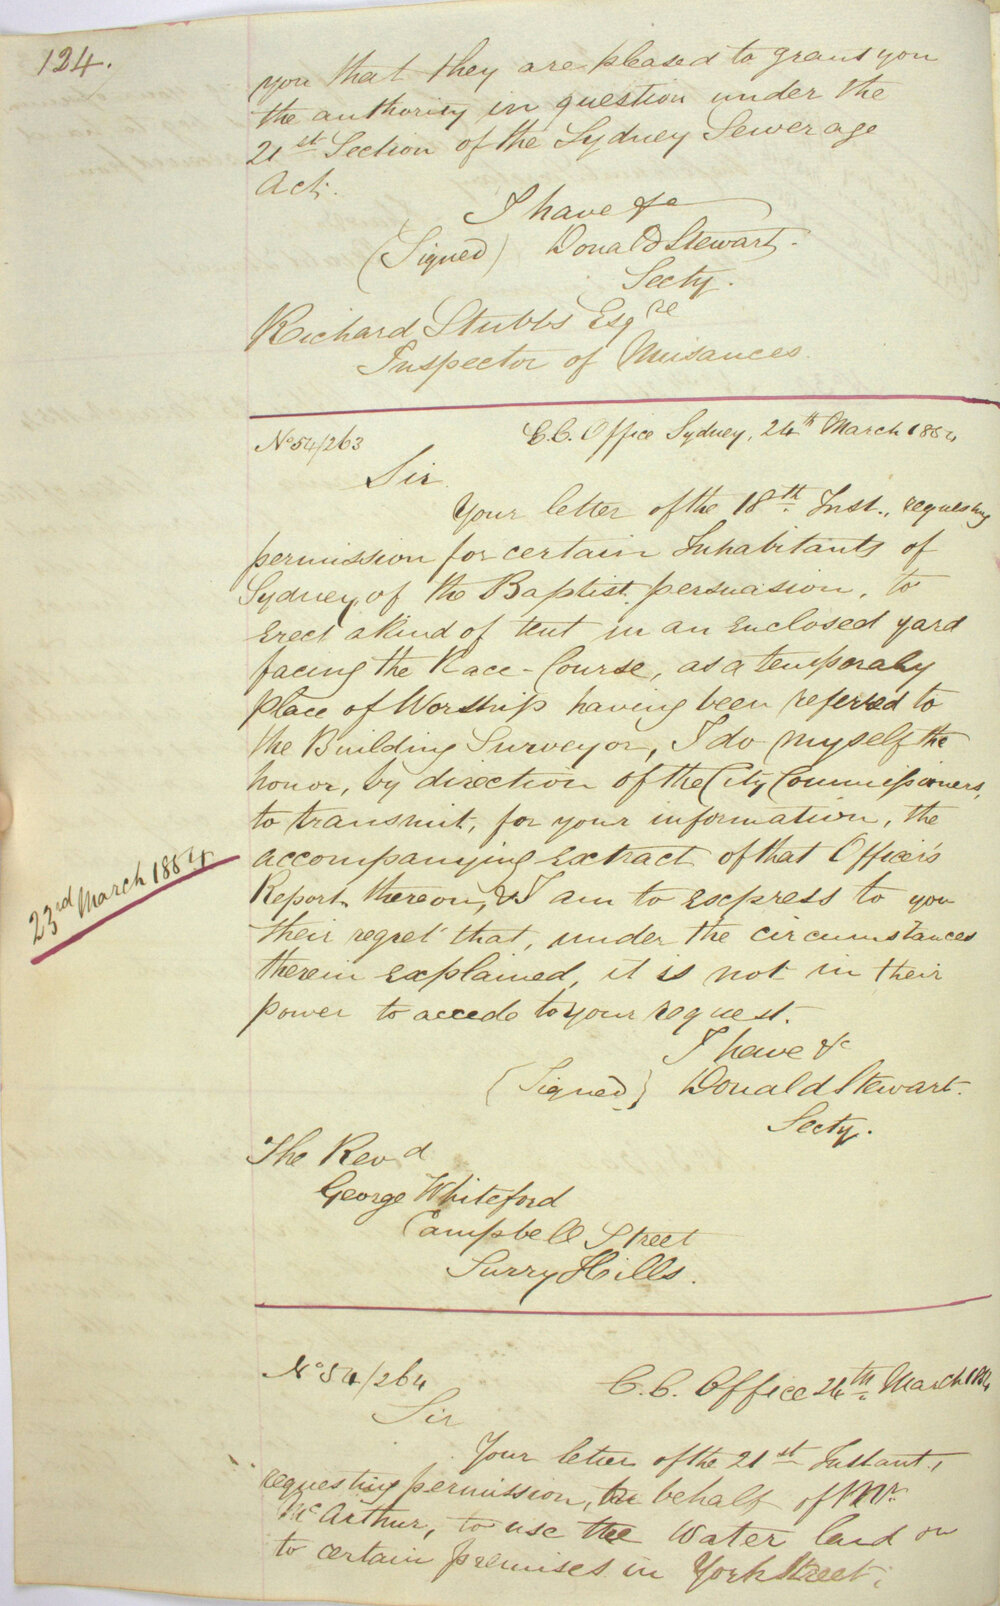 124.
you that they are pleased to grant you
the authority in question under the
21st Section of the Sydney Sewerage
Act.
I have &c
(Signed) Donald Stewart.
Secty.
Richard Stubbs Esqre
Inspector of Nuisances.
No 54/263
C.C. Office Sydney, 24th March 1854
Sir
Your letter of the 18th Inst., requesting
permission for certain Inhabitants of
Sydney, of the Baptist persuasion, to
erect a kind of tent in an enclosed yard
facing the Race-Course, as a temporary
place of Worship having been referred to
the Building Surveyor, I do myself the
honor, by direction of the City Commissioners,
to transmit, for your information, the
accompanying extract of that Officer's
23rd March 1854
Report thereon, & I am to express to you
their regret that, under the circumstances
therein explained, it is not in their
power to accede to your request.
I have &c
(Signed) Donald Stewart.
Secty.
The Revd
George Whiteford
Campbell Street
Surry Hills.
No 54/264
C.C. Office 24th March 1854
Sir
Your letter of the 21st Instant,
requesting permission, on behalf of Mr.
McArthur, to use the Water laid on
to certain premises in York Street,